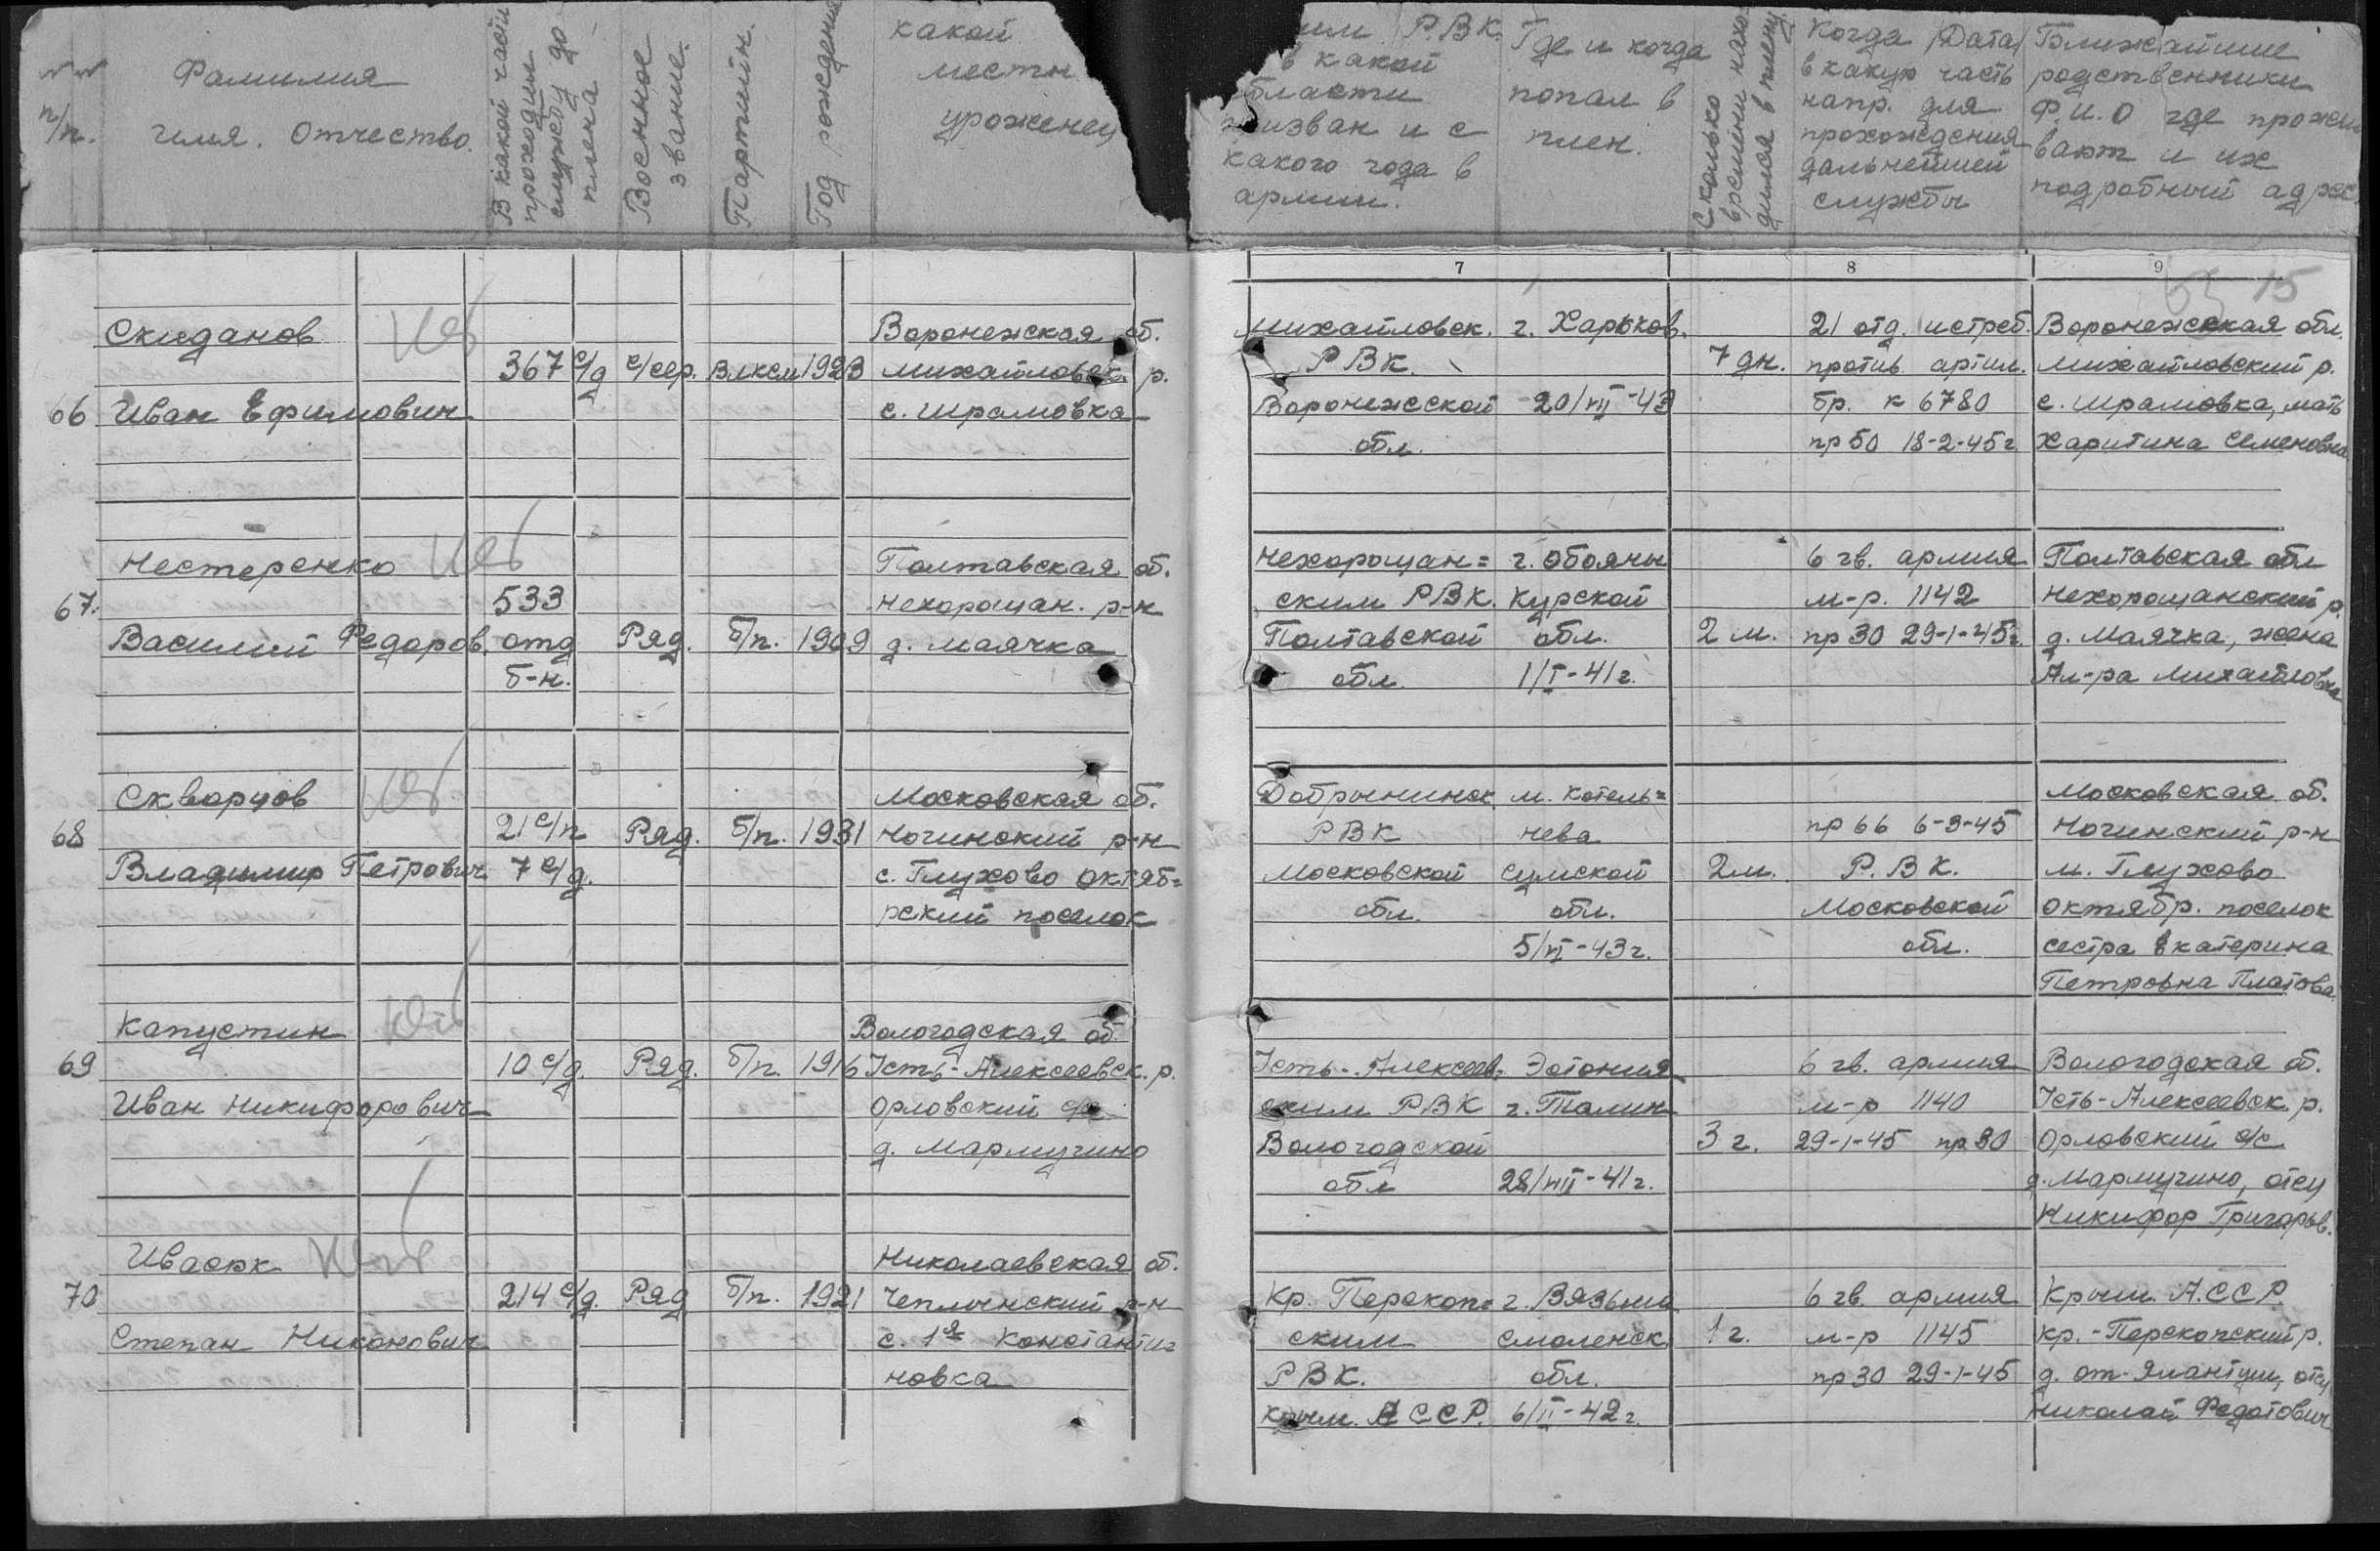 №№ п/п.
Фамилия
имя. Отчество.
В какой части
проходил
службу до
плена
Военное
звание.
Партийн.
Год рождения
какой
местн
уроженец
ким РВК.
в какой
области
призван и с
какого года в
армии.
Где и когда
попал в
плен.
Сколько
времени нахо-
дился в плену.
Когда /Дата/
в какую часть
напр. для
прохождения
дальнейшей
службы
Ближайшие
родственники
Ф.И.О где прожи
вают и их
подробный адрес.
7 8 9
15
Скиданов Воронежская об.
367 с/д с/сер. Влксм 1923 Михайловск. р.
66 Иван Ефимович с. Шрамовка
Михайловск. г. Харьков. 21 отд. истреб. Воронежская обл.
РВК. 7 дн. против. артил. Михайловский р.
Воронежской 20/VII-43 бр. к 6780 с. Шрамовка, мать
обл. пр 50 18-2-45г. Харитина Семеновна.
Нестеренко Полтавская об.
67. 533 Нехорощан. р-н
Василий Федоров. отд Ряд. б/п. 1909 д. Маячка
б-н.
Нехорощан= г. Обоянь 6 гв. армия Полтавская обл
ским РВК. Курской м-р. 1142 Нехорощанский р.
Полтавской обл. 2 м. пр 30 29-1-45г. д. Маячка, жена
обл. 1/I-41г. Ал-ра Михайловна
Скворцов Московская об.
68 21 с/п Ряд. б/п. 1931 Ногинский р-н
Владимир Петрович 7 с/д. с. Глухово Октяб=
рский поселок
Добрынинск м. Котель= Московская об.
РВК нева пр 66 6-3-45 Ногинский р-н
Московской Сумской 2м. Р.В.К. м. Глухово
обл. обл. Московской октябр. поселок
5/VI-43г. обл. сестра Екатерина
Петровна Платова.
Капустин Вологодская об.
69 10 с/д. Ряд. б/п. 1916 Усть-Алексеевск. р.
Иван Никифорович Орловский с/с
д. Мармугино
Усть-Алексеев= Эстония 6 гв. армия Вологодская об.
ским РВК г. Талин м-р 1140 Усть-Алексеевск. р.
Вологодской 3 г. 29-1-45 пр 30 Орловский с/с
обл 28/VIII-41г. д. Мармугино, отец
Никифор Григорьв.
Ивасюк Николаевская об.
70 214 с/д. Ряд б/п. 1921 Чеплинский р-н
Степан Никонович с. 1я Константи=
новка
Кр. Перекоп= г. Вязьма 6 гв. армия Крым. А.ССР.
ским Смоленск. 1 г. м-р 1145 Кр.-Перекопский р.
РВК. обл. пр 30 29-1-45 д. от-Ямантуш, отец
Крым. АССР. 6/II-42г. Николай Федотович